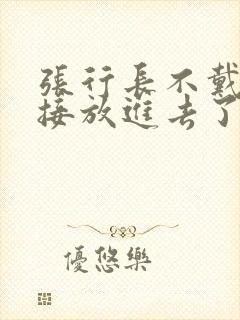 張行長不戴
接放進去了
優悠樂